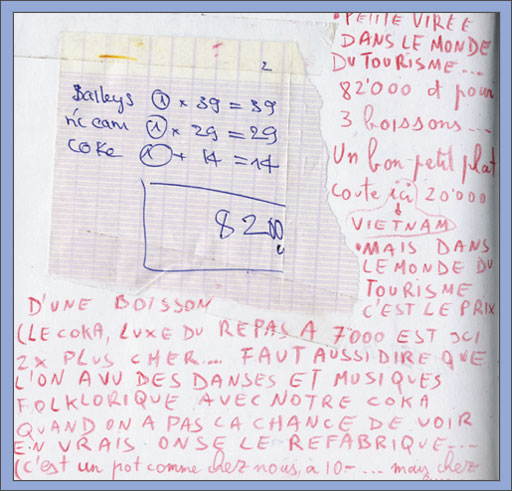 2
Baileys 1 × 39 = 39
ric cam 1 × 29 = 29
coke 1 + 14 = 14
82.000
• PETITE VIRÉE
DANS LE MONDE
DU TOURISME...
82'000 d pour
3 boissons...
Un bon petit plat
coute ici 20'000
VIETNAM
• MAIS DANS
LE MONDE DU
TOURISME
C'EST LE PRIX
D'UNE BOISSON
(LE COKA, LUXE DU REPAS A 7'000 EST ICI
2X PLUS CHER... FAUT AUSSI DIRE QUE
L'ON A VU DES DANSES ET MUSIQUES
FOLKLORIQUE AVEC NOTRE COKA
QUAND ON A PAS LA CHANCE DE VOIR
EN VRAIS ON SE LE REFABRIQUE...
(c'est un pot comme chez nous, à 10.-... may chez